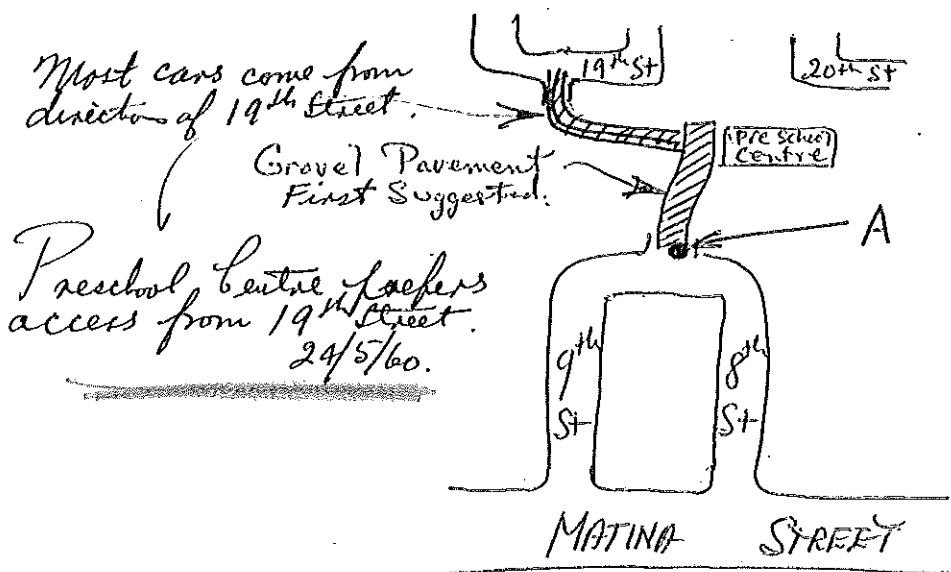 Most cars come from
direction of 19th Street.
Gravel Pavement
First Suggested.
Preschool Centre prefers
access from 19th Street.
24/5/60.
19th St
20th St
Pre School
Centre
A
9th
St
8th
St
MATINA STREET